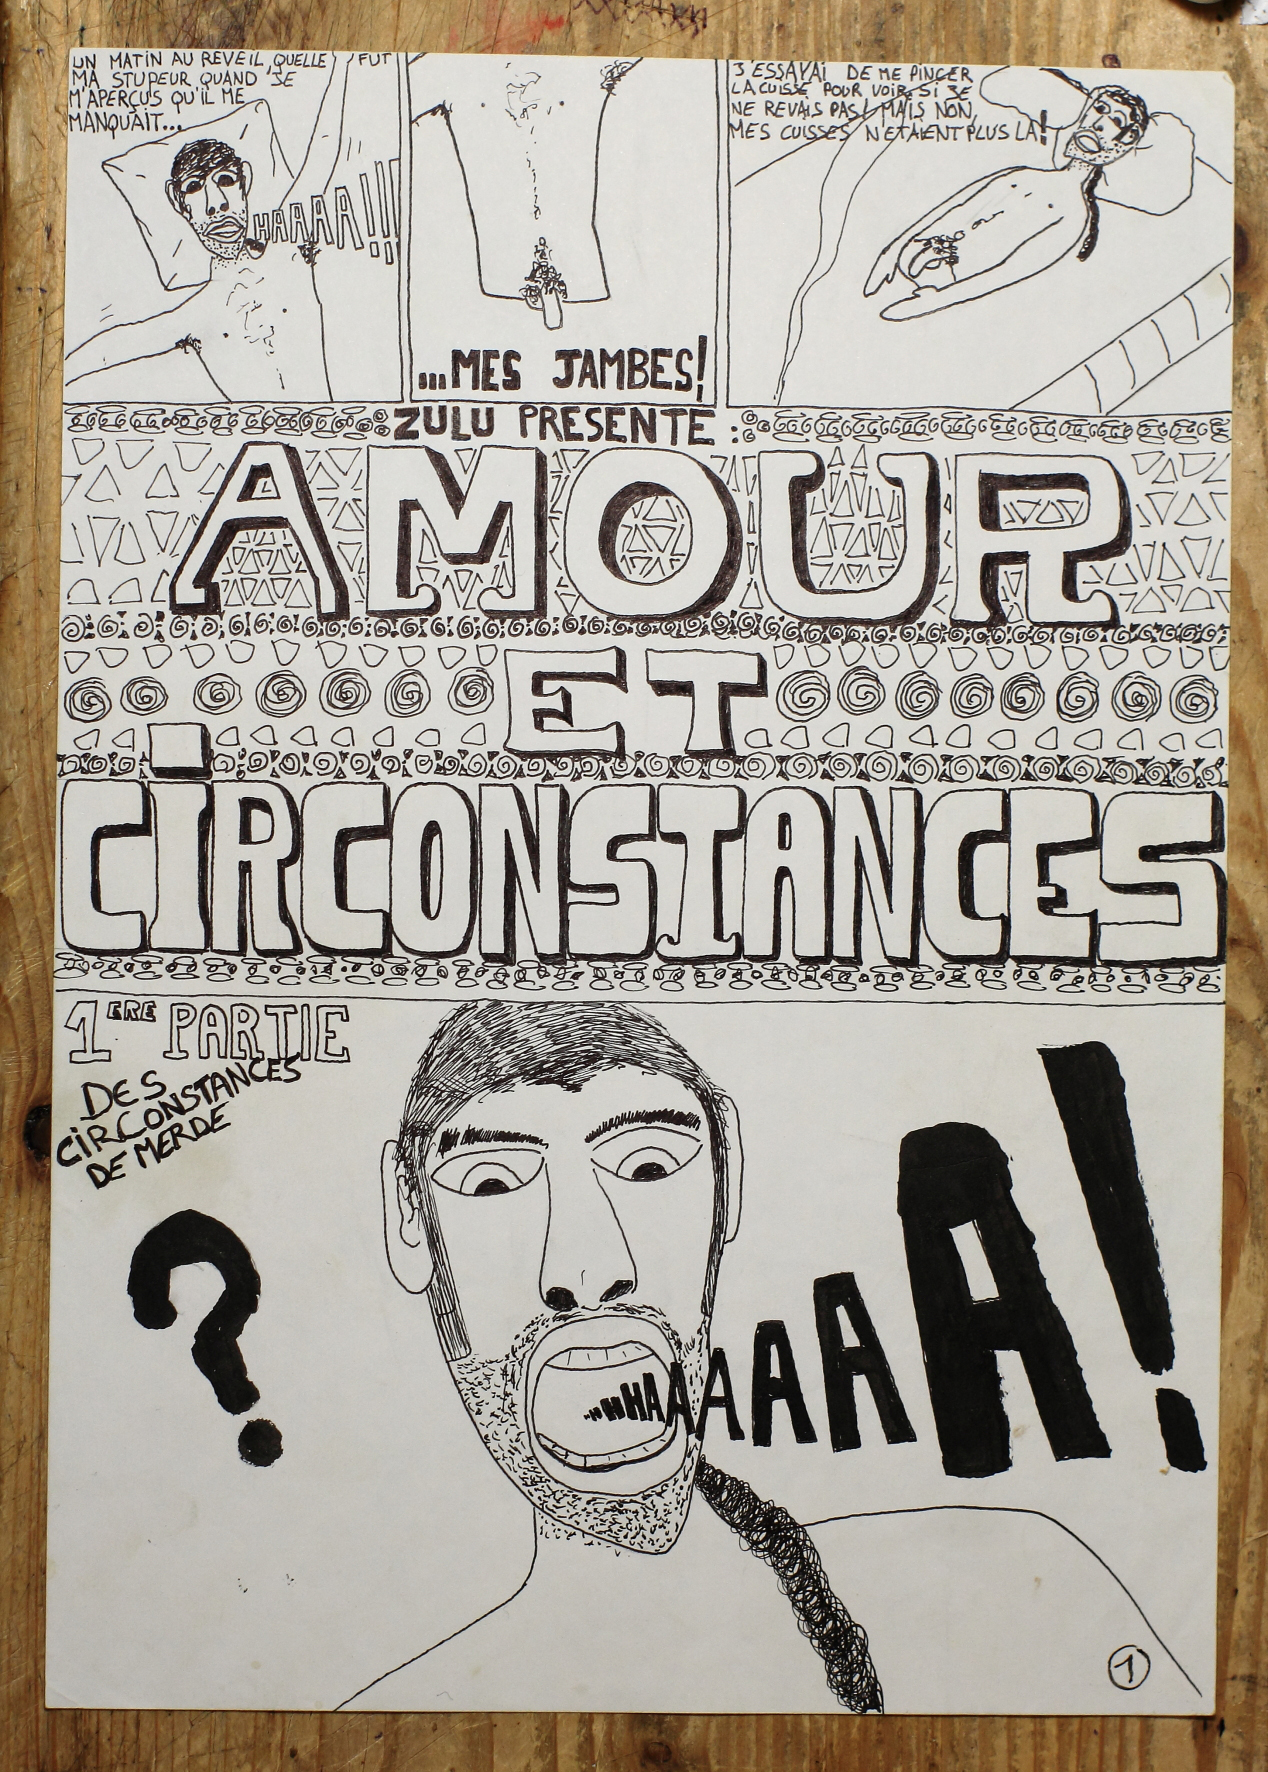 UN MATIN AU REVEIL, QUELLE FUT
MA STUPEUR QUAND JE
M'APERÇUS QU'IL ME
MANQUAIT...
HAAAA!!!
...MES JAMBES!
J'ESSAYAI DE ME PINCER
LA CUISSE POUR VOIR SI JE
NE REVAIS PAS! MAIS NON,
MES CUISSES N'ETAIENT PLUS LA!
ZULU PRESENTE :
AMOUR
ET
CIRCONSTANCES
1ERE PARTIE
DES
CIRCONSTANCES
DE MERDE
?
...HHHAAAAAAA!
1